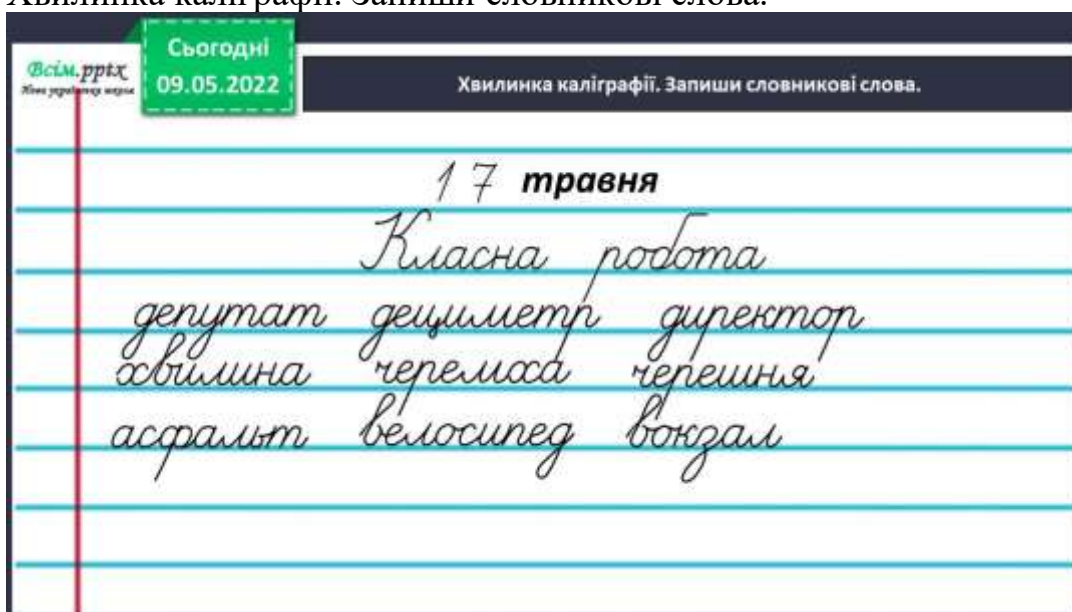 Хвилинка каліграфії. Запиши словникові слова.
Сьогодні
09.05.2022
Всім.pptx
Нова українська школа
Хвилинка каліграфії. Запиши словникові слова.
17 травня
Класна робота
депутат дециметр директор
хвилина черемха черешня
асфальт велосипед вокзал